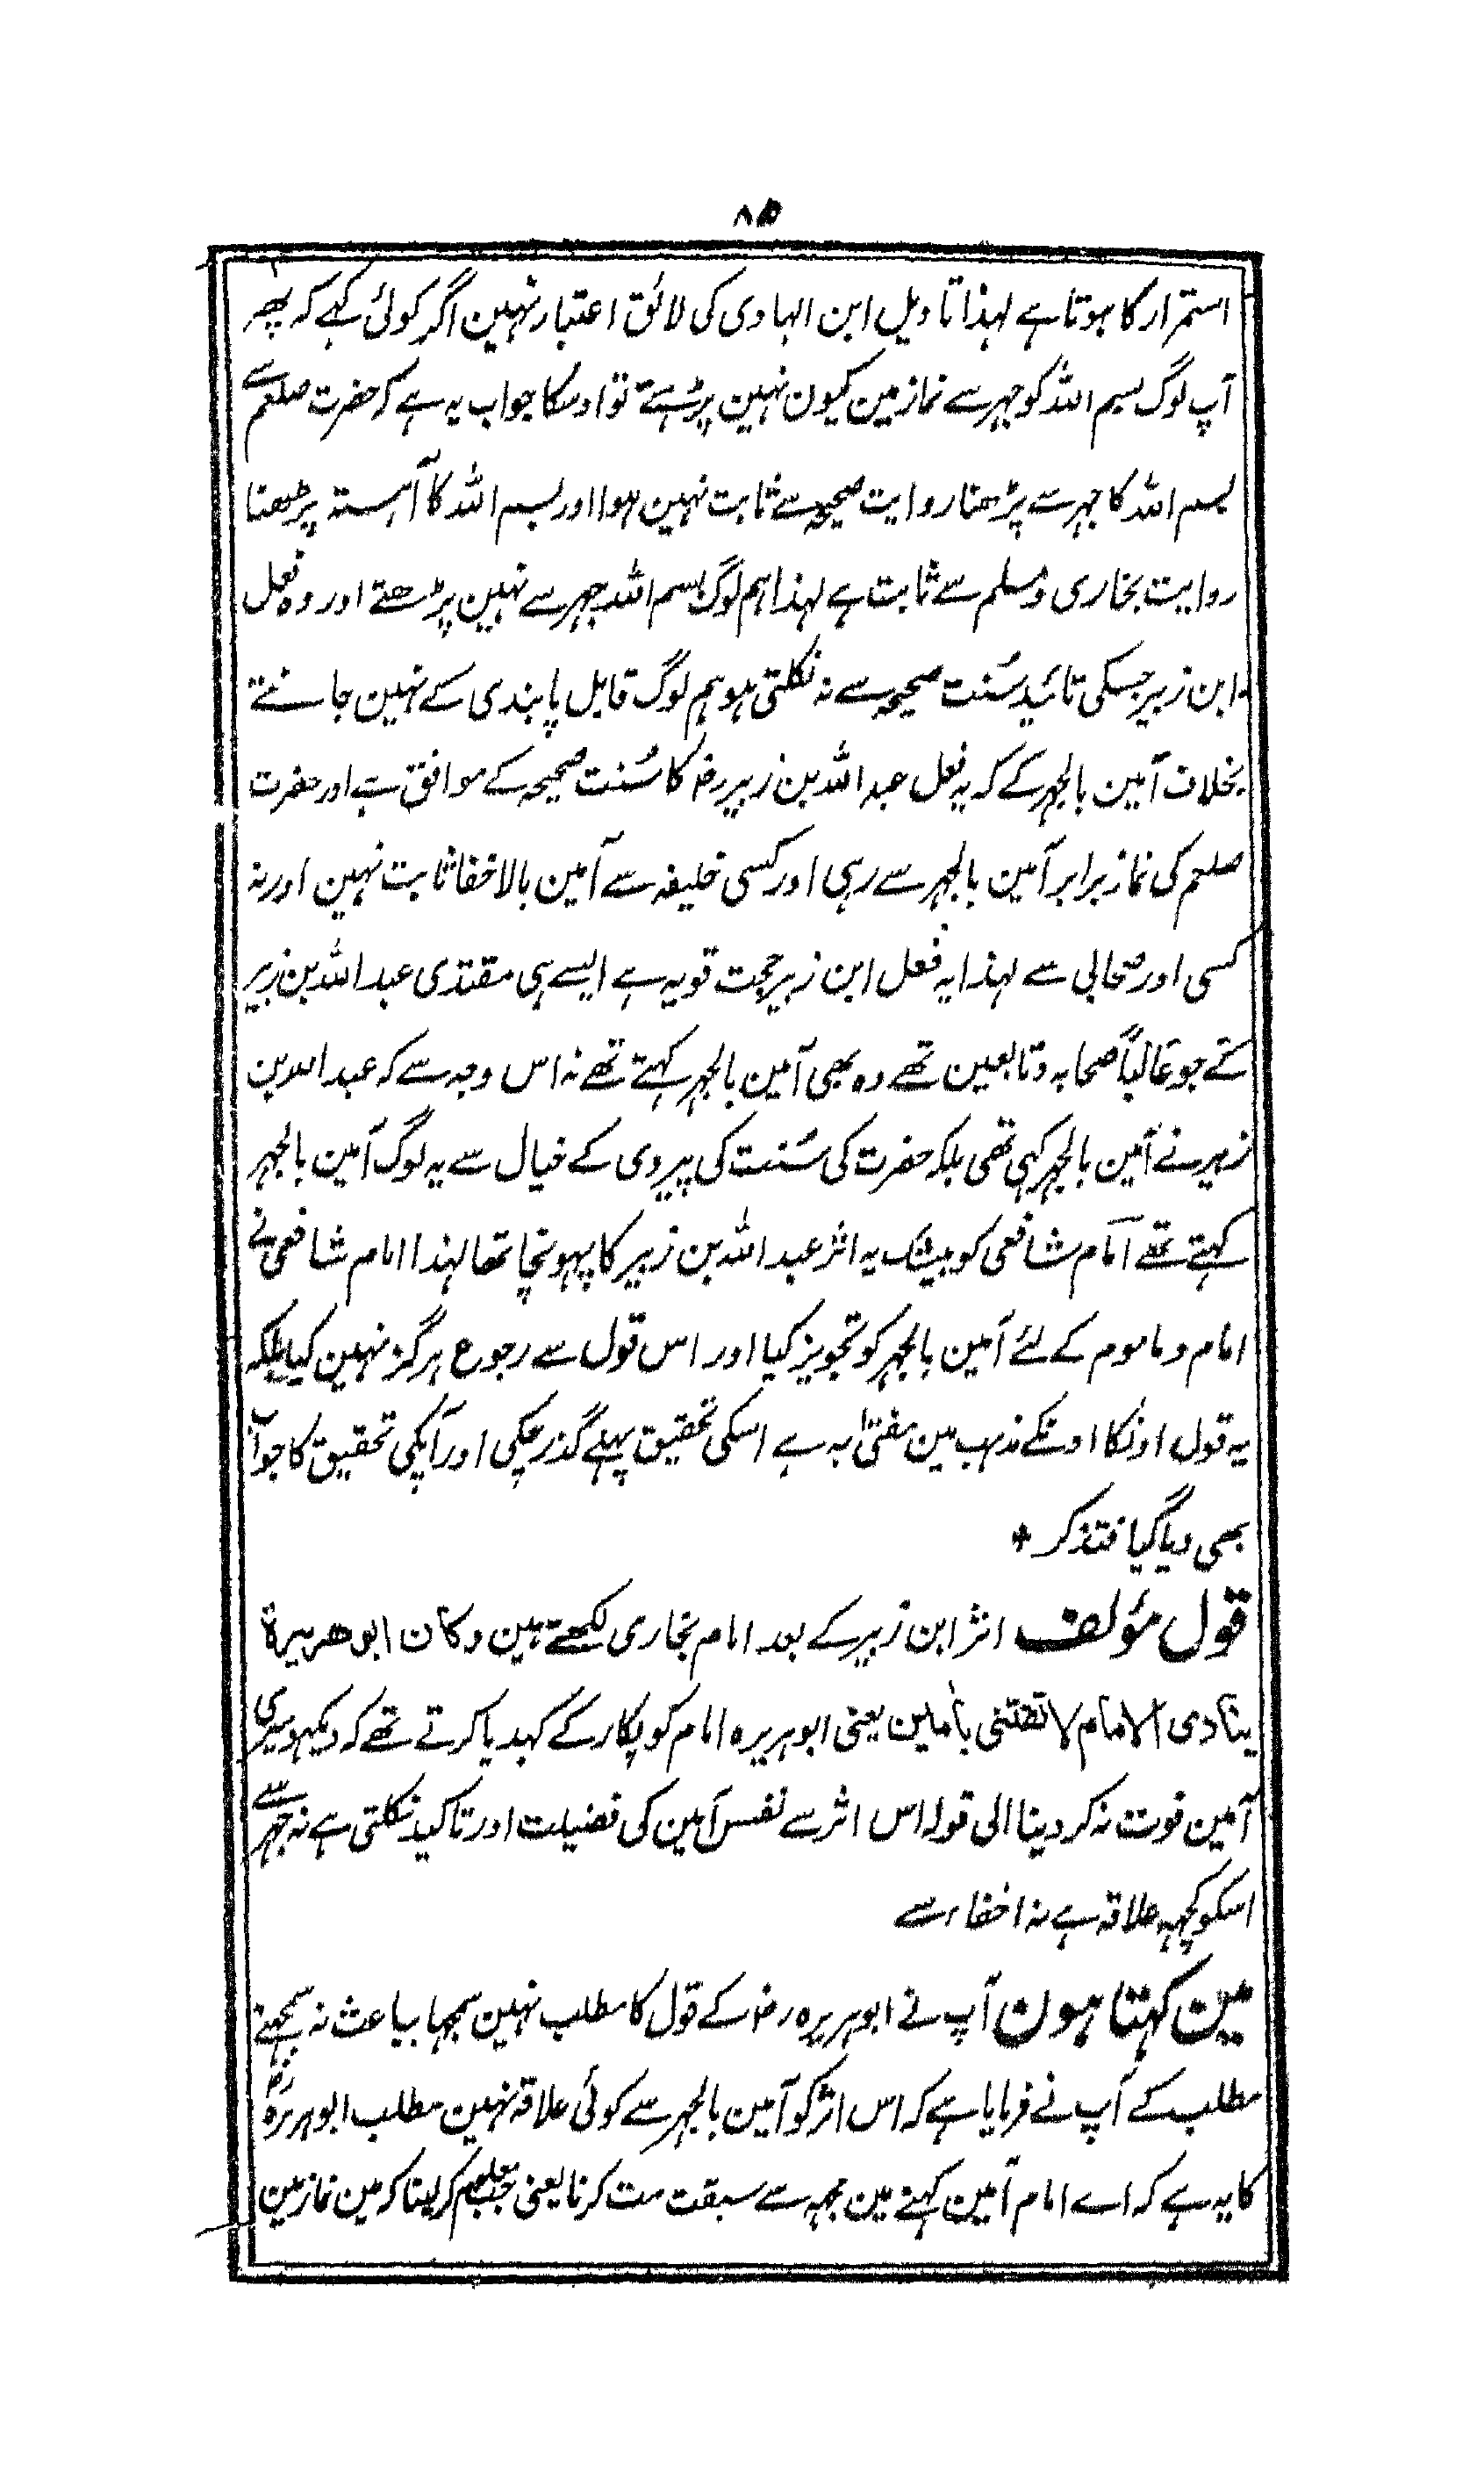 ۸۵
استمرار کا ہوتا ہے لہذا تاویل ابن الہادی کی لائق اعتبار نہین اگر کوئی کہے کہ پھر
آپ لوگ بسم اللہ کو جہر سے نماز مین کیون نہین پڑہتے تو اوسکا جواب یہ ہے کہ حضرت صلعم سے
بسم اللہ کا جہر سے پڑھنا روایت صحیحہ سے ثابت نہین ہوا اور بسم اللہ کا آہستہ پڑھنا
روایت بخاری و مسلم سے ثابت ہے لہذا ہم لوگ بسم اللہ جہر سے نہین پڑھتے اور وہ فعل
ابن زبیر جسکی تائید سُنت صحیحہ سے نہ نکلتی ہو ہم لوگ قابل پابندی کے نہین جانتے
بخلاف آمین بالجہر کے کہ یہ فعل عبد اللہ بن زبیر رض کا سُنت صحیحہ کے موافق ہے اور حضرت
صلعم کی نماز برابر آمین بالجہر سے رہی اور کسی خلیفہ سے آمین بالاخفا ثابت نہین اور نہ
کسی اور صحابی سے لہذا یہ فعل ابن زبیر حجت قویہ ہے ایسے ہی مقتدی عبد اللہ بن زبیر
کے جو غالباً صحابہ و تابعین تھے وہ بھی آمین بالجہر کہتے تھے نہ اس وجہ سے کہ عبد اللہ بن
زبیر نے آمین بالجہر کہی تھی بلکہ حضرت کی سُنت کی پیروی کے خیال سے یہ لوگ آمین بالجہر
کہتے تھے امام شافعی کو بیشک یہ اثر عبد اللہ بن زبیر کا پہونچا تھا لہذا امام شافعی نے
امام و ماموم کے لئے آمین بالجہر کو تجویز کیا اور اس قول سے رجوع ہرگز نہین کیا بلکہ
یہ قول اونکا اونکے مذہب مین مفتیٰ بہ ہے اسکی تحقیق پہلے گذر چکی اور آپکی تحقیق کا جواب
بھی دیا گیا فتذکر +
قول مؤلف اثر ابن زبیر کے بعد امام بخاری لکھتے ہین وکان ابو ھریرۃ
ینادی الامام لا تفتنی بآمین یعنی ابو ہریرہ امام کو پکار کے کہدیا کرتے تھے کہ دیکہو میری
آمین فوت نہ کر دینا الی قولہ اس اثر سے نفس آمین کی فضیلت اور تاکید نکلتی ہے نہ جہر سے
اسکو کچہہ علاقہ ہے نہ اخفاء سے
مین کہتا ہون آپ نے ابو ہریرہ رض کے قول کا مطلب نہین سمجہا بباعث نہ سمجہنے
مطلب کے آپ نے فرمایا ہے کہ اس اثر کو آمین بالجہر سے کوئی علاقہ نہین مطلب ابو ہریرہ رض
کا یہ ہے کہ اے امام آمین کہنے مین مجہہ سے سبقت مت کرنا یعنی جب معلوم کر لینا کہ مین نماز مین